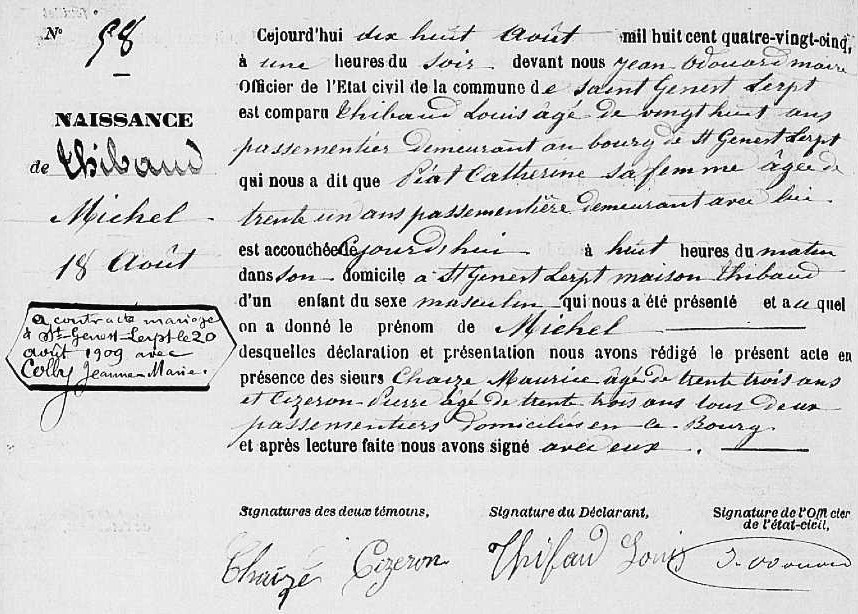 N° 98
NAISSANCE
de Thibaud
Michel
18 Août
a contracté mariage
à St-Genest-Lerpt le 20
août 1909 avec
Colly Jeanne-Marie.
Cejourd'hui dix huit Août mil huit cent quatre-vingt-cinq,
à une heures du soir devant nous Jean Odouard maire
Officier de l'Etat civil de la commune de Saint Genest Lerpt
est comparu Thibaud Louis âgé de vingt huit ans
passementier demeurant au bourg de St Genest Lerpt
qui nous a dit que Péat Catherine sa femme âgée de
trente un ans passementière demeurant avec lui
est accouchée Cejourd'hui à huit heures du matin
dans son domicile à St Genest Lerpt maison Thibaud
d'un enfant du sexe masculin qui nous a été présenté et auquel
on a donné le prénom de Michel
desquelles déclaration et présentation nous avons rédigé le présent acte en
présence des sieurs Chaize Maurice âgé de trente trois ans
et Cizeron Pierre âgé de trente trois ans tous deux
passementiers domiciliés en ce Bourg
et après lecture faite nous avons signé avec eux.
Signatures des deux témoins,
Signature du Déclarant,
Signature de l'Officier
de l'état-civil,
Chaizé Cizeron Thibaud Louis J. Odouard